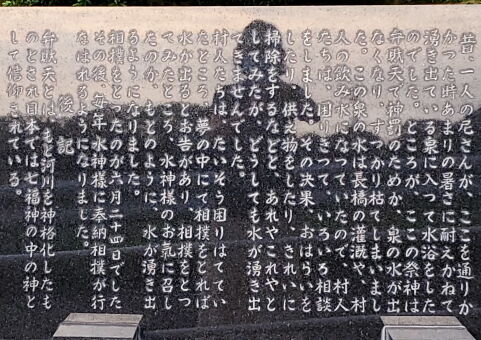 昔、一人の尼さんが、ここを通りか
かった時あまりの暑さに耐えかねて
湧き出ている泉に入って水浴をした
のでした。ところが、ここの祭神は
弁財天で神罰のためか、泉の水が出
なくなり、すっかり枯てしまいまし
た。この泉の水は長橋の灌漑や、村
人の飲み水になっていたので、村人
たちは、困りきっていろいろ相談
をしました。その決果、おはらいを
したり、供え物をしたり、きれいに
掃除をするなどと、あれやこれやと
してみたが、どうしても水が湧き出
てきませんでした。
村人たちは、たいそう困りはててい
たところ、夢の中にて相撲をとれば
水が出るとお告があり、相撲をとっ
てみたところ、水神様のお気に召し
たのか、もとのように、水が湧き出
るようになりました。
相撲をとったのが六月二十四日でした
その後、毎年水神様に奉納相撲が行
なはれるようになりました。
後記
弁財天とは、もと河川を神格化したも
のとされ日本では七福神の中の神と
して信仰されている。